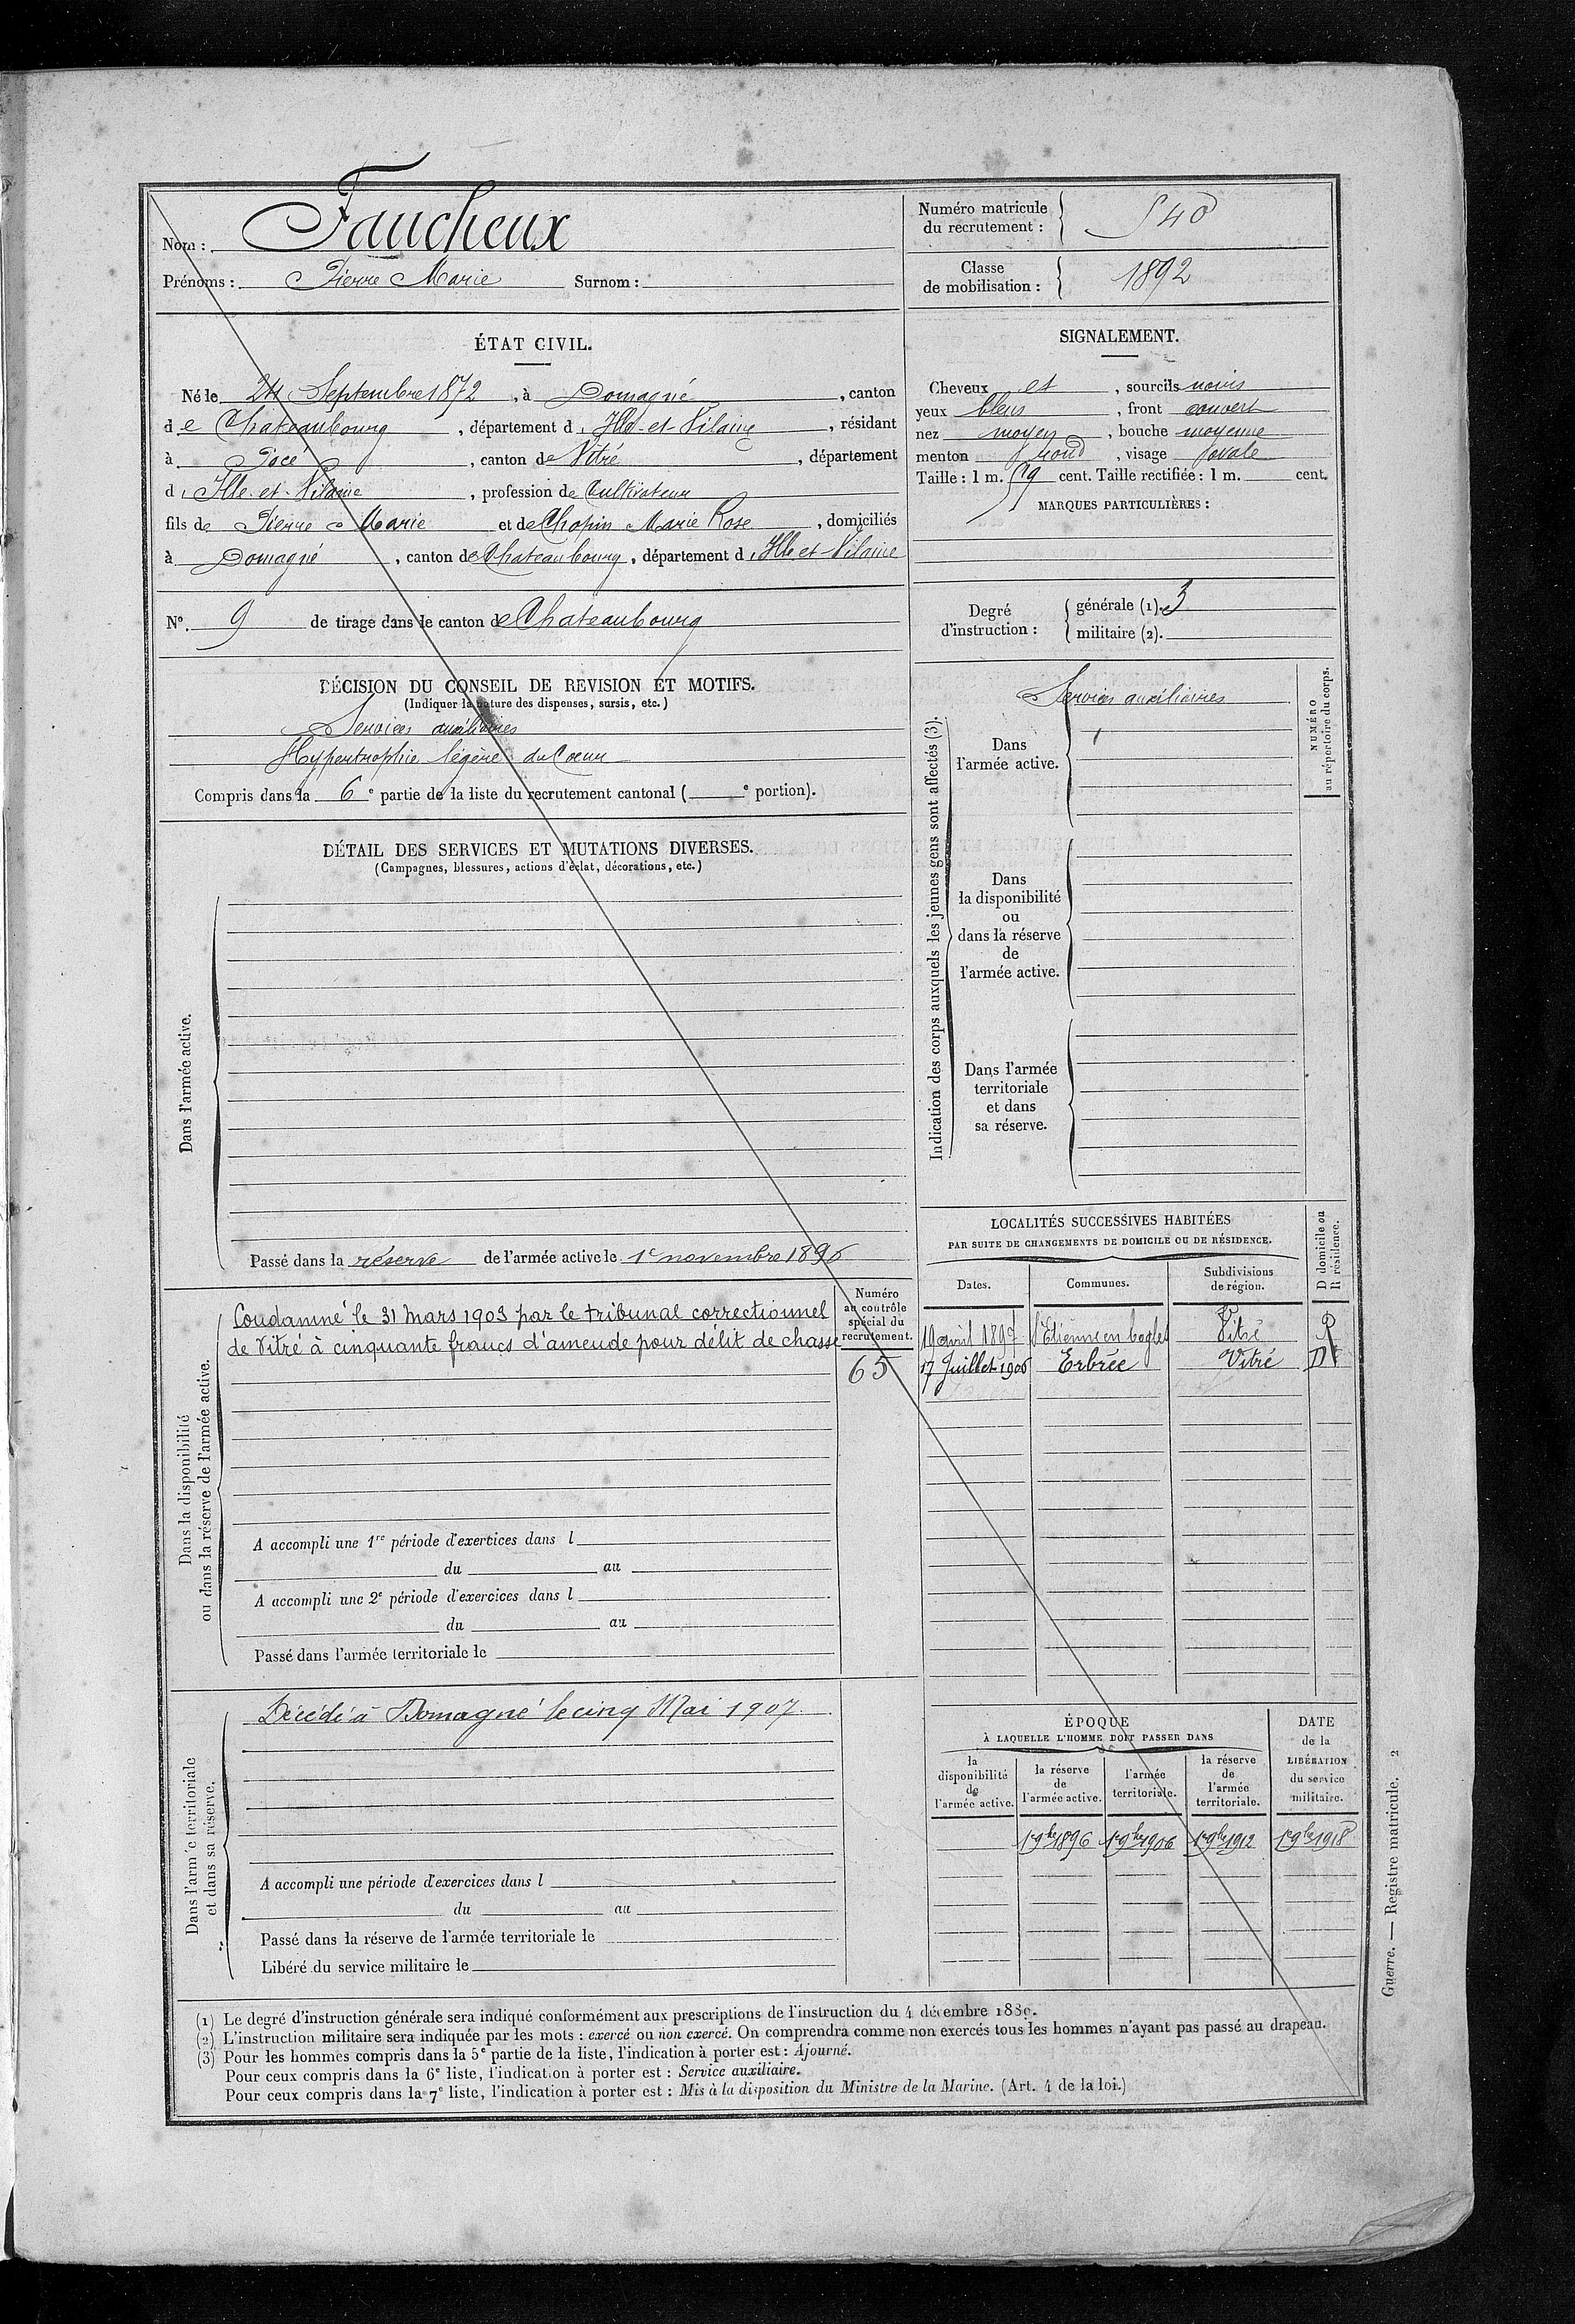 Nom : Faucheux
Prénoms : Pierre Marie Surnom :
Numéro matricule du recrutement : 540
Classe de mobilisation : 1892
ÉTAT CIVIL.
Né le 24 Septembre 1872, à Domagné, canton
de Chateaubourg, département d'Ille-et-Vilaine, résidant
à Pocé, canton de Vitré, département
d'Ille-et-Vilaine, profession de Cultivateur
fils de Pierre Marie et de Chopin Marie Rose, domiciliés
à Domagné, canton de Chateaubourg, département d'Ille-et-Vilaine
N°. 9 de tirage dans le canton de Chateaubourg
SIGNALEMENT.
Cheveux et, sourcils noirs
yeux bleus, front couvert
nez moyen, bouche moyenne
menton rond, visage ovale
Taille : 1 m. 59 cent. Taille rectifiée : 1 m. cent.
MARQUES PARTICULIÈRES :
Degré d'instruction : générale (1). 3
militaire (2).
DÉCISION DU CONSEIL DE REVISION ET MOTIFS.
(Indiquer la nature des dispenses, sursis, etc.)
Services auxiliaires
Hypertrophie légère du Coeur
Compris dans la 6e partie de la liste du recrutement cantonal ( e portion).
DÉTAIL DES SERVICES ET MUTATIONS DIVERSES.
(Campagnes, blessures, actions d'éclat, décorations, etc.)
Dans l'armée active.
Passé dans la réserve de l'armée active le 1er novembre 1896
Indication des corps auxquels les jeunes gens sont affectés (3).
Services auxiliaires
Dans
l'armée active.
Dans
la disponibilité
ou
dans la réserve
de
l'armée active.
Dans l'armée
territoriale
et dans
sa réserve.
NUMÉRO
au répertoire du corps.
Dans la disponibilité
ou dans la réserve de l'armée active.
Condamné le 31 Mars 1903 par le tribunal correctionnel
de Vitré à cinquante francs d'amende pour délit de chasse
Numéro
au contrôle
spécial du
recrutement.
65
A accompli une 1re période d'exercices dans l
du au
A accompli une 2e période d'exercices dans l
du au
Passé dans l'armée territoriale le
LOCALITÉS SUCCESSIVES HABITÉES
PAR SUITE DE CHANGEMENTS DE DOMICILE OU DE RÉSIDENCE.
Dates. Communes. Subdivisions de région. D domicile ou R résidence.
19 avril 1897 St Etienne en Cogles Vitré R
17 Juillet 1906 Erbrée Vitré D
Dans l'armée territoriale
et dans sa réserve.
Décédé à Domagné le cinq Mai 1907.
A accompli une période d'exercices dans l
du au
Passé dans la réserve de l'armée territoriale le
Libéré du service militaire le
ÉPOQUE
À LAQUELLE L'HOMME DOIT PASSER DANS
la disponibilité de l'armée active.
la réserve de l'armée active.
l'armée territoriale.
la réserve de l'armée territoriale.
DATE de la LIBÉRATION du service militaire.
1er 9bre 1896 1er 9bre 1906 1er 9bre 1912 1er 9bre 1918
Guerre. — Registre matricule. 2
(1) Le degré d'instruction générale sera indiqué conformément aux prescriptions de l'instruction du 4 décembre 1889.
(2) L'instruction militaire sera indiquée par les mots : exercé ou non exercé. On comprendra comme non exercés tous les hommes n'ayant pas passé au drapeau.
(3) Pour les hommes compris dans la 5e partie de la liste, l'indication à porter est : Ajourné.
Pour ceux compris dans la 6e liste, l'indication à porter est : Service auxiliaire.
Pour ceux compris dans la 7e liste, l'indication à porter est : Mis à la disposition du Ministre de la Marine. (Art. 4 de la loi.)